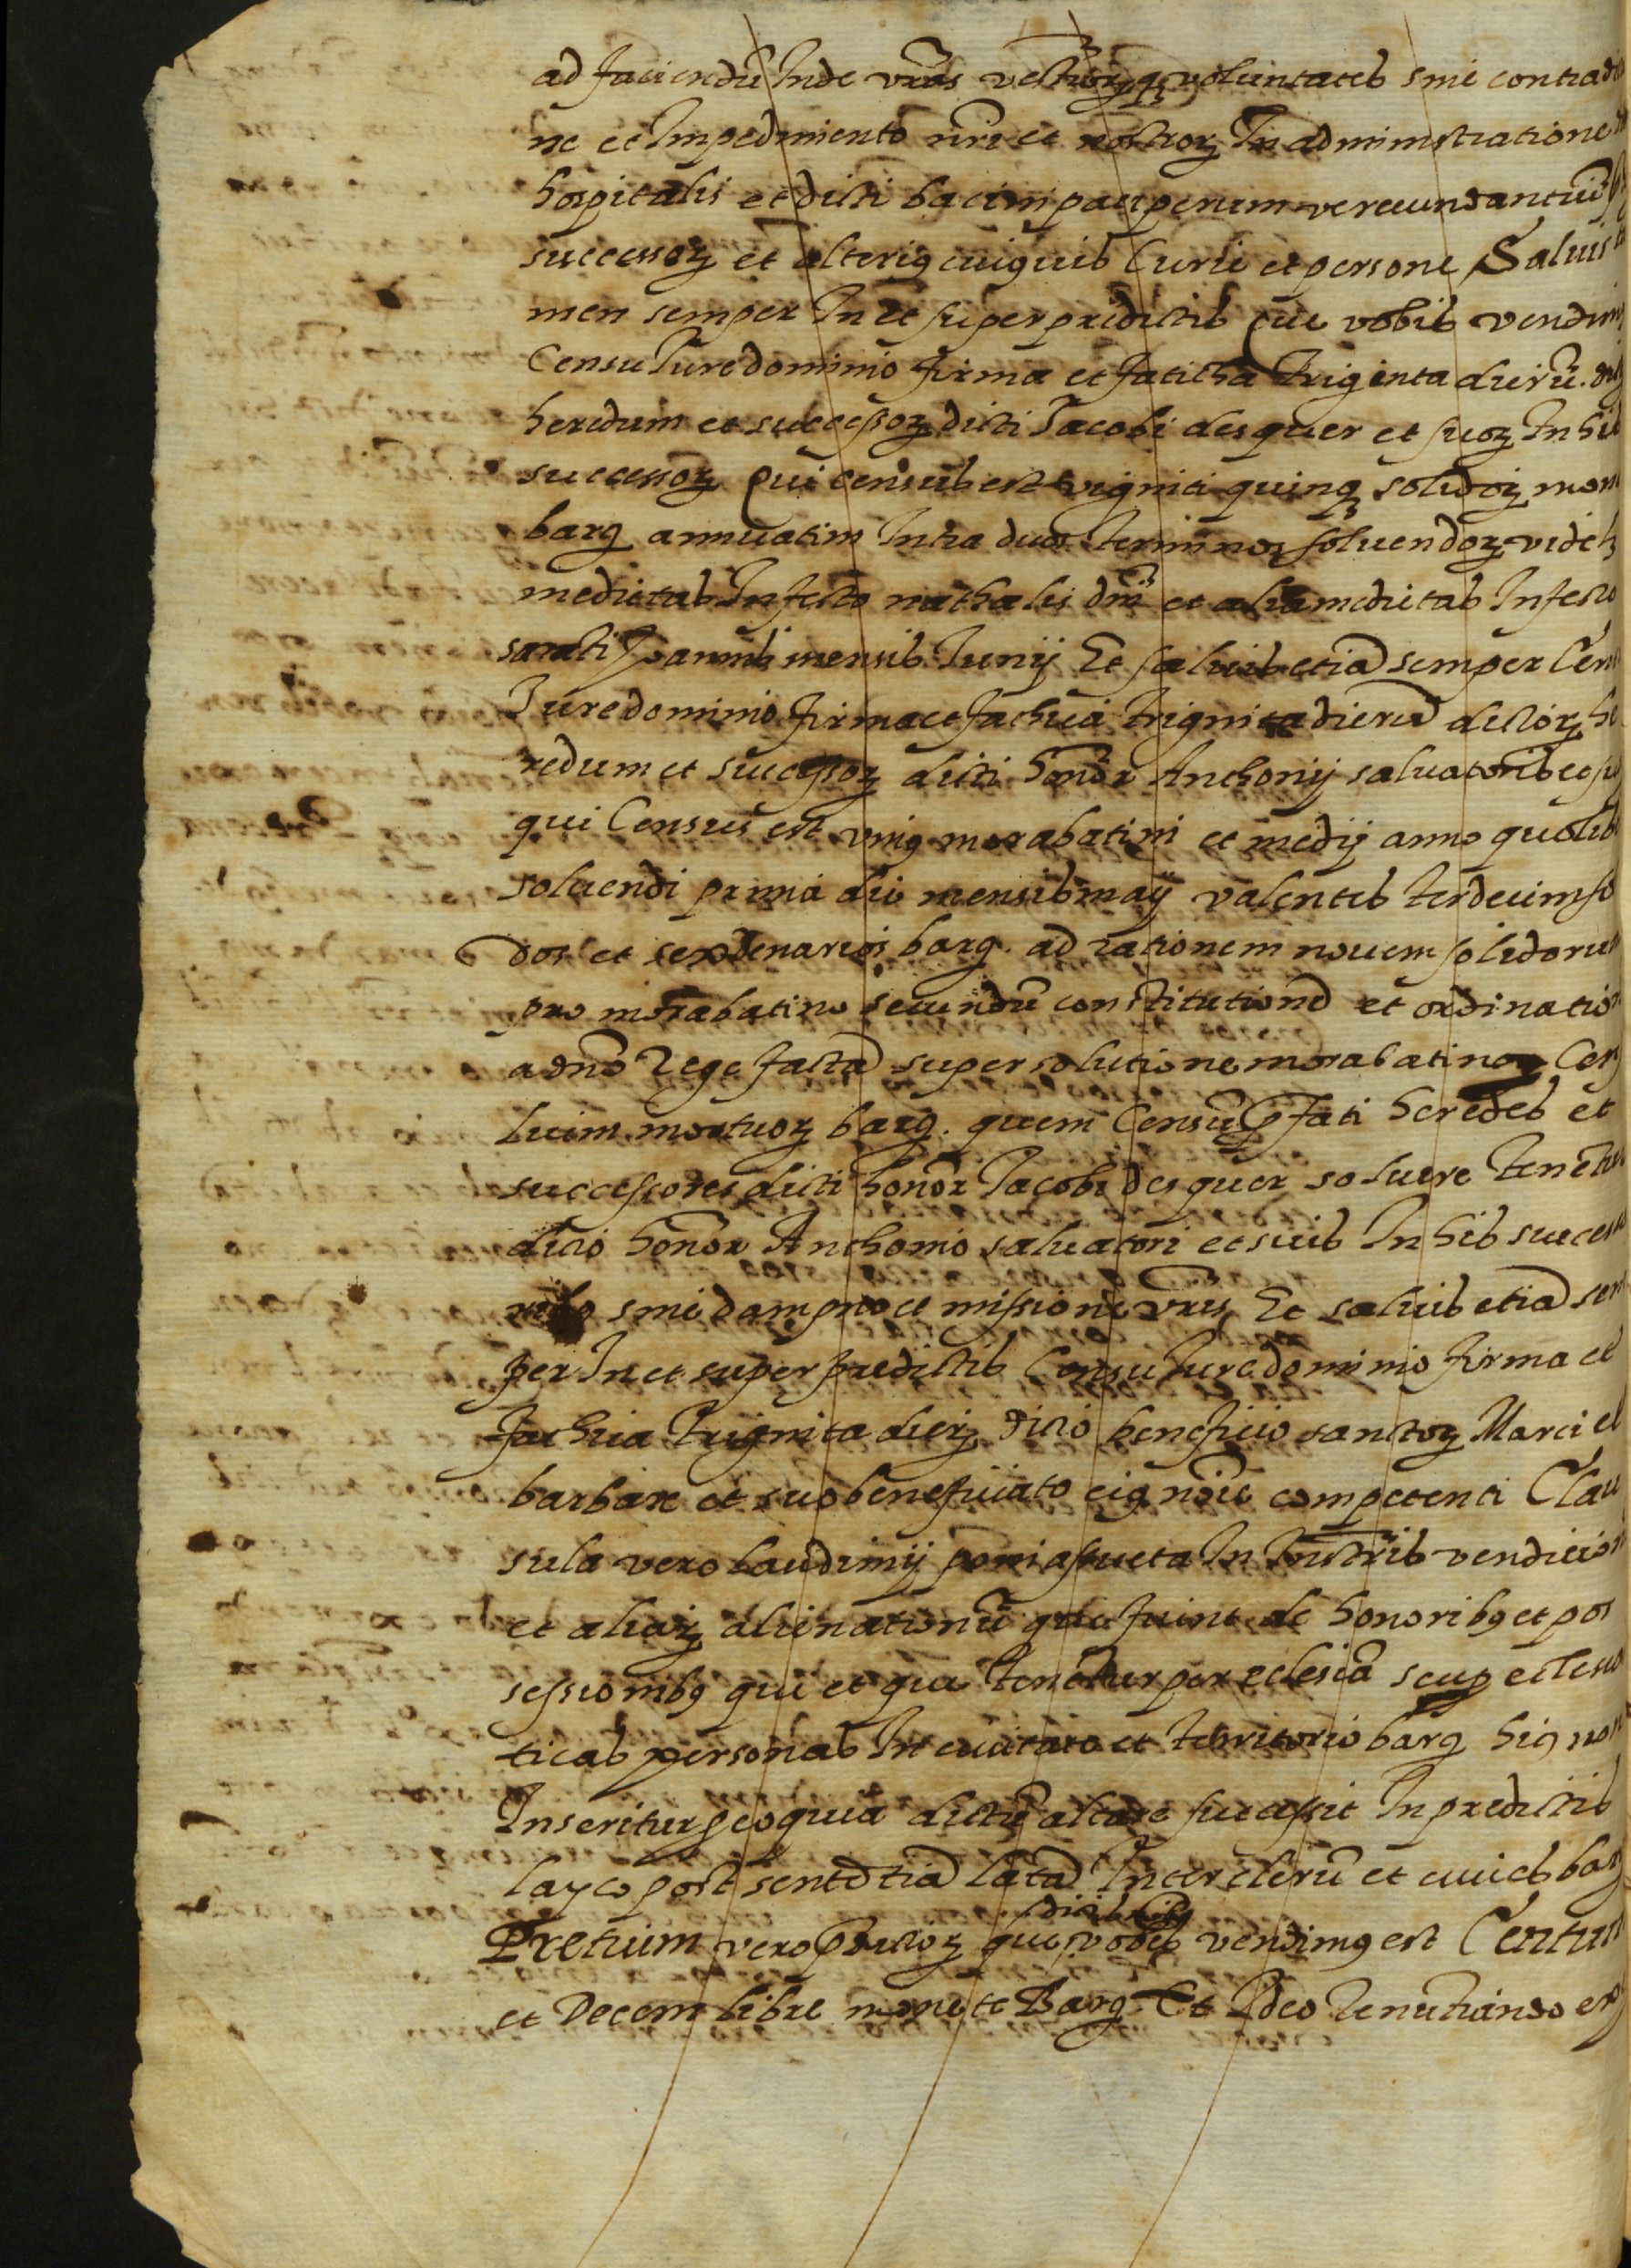 ad faciendũ Inde vr̃as vestrorꝫqꝫ voluntates sine contradic
ne et Impedimento nr̃i et nostrorꝫ In administratione
hospitalis et dicti bacini pauperum verecundantiũ
successorꝫ et alteriꝯ cuiꝯuis Curie et persone Saluis ta
men semper In et super predictis que vobis vendimꝯ
Censu Iure dominio firma et faticha triginta dierũ
heredum et successorꝫ dicti Iacobi desquer et suorꝫ In his
successorꝫ Qui census est viginti quinqꝫ solidorꝫ mon
barꝯ annuatim Intra duos terminos soluendorꝫ videlꝫ
medietas In festo nathalis dnĩ et alia medietas In festo
sancti Joannis mensis Iunij Et saluis etiã semper Cens
Iure dominio firma et fathica triginta dierũ dictorꝫ he
redum et successorꝫ dicti honor̃ Anthonij saluatoris et su
qui Census est vniꝯ morabatini et medij anno quolib
soluendi prima die mensis maij valentis terdecim so
dos et sex denarios barꝯ. ad rationem nouem solidorum
pro morabatino secundũ constitutionẽ et ordination
a dnõ Rege factã super solutione morabatinorꝫ Cen
luim mortuorꝫ barꝯ. quem Censũ p̃fati heredes et
successores dicti honor̃ Iacobi desquer soluere tenẽtur
dicto honor̃ Anthonio saluatori et suis In his success
sine dampno et missione vr̃is Et saluis etiã sem
per In et super predictis Censu Iure dominio firma et
fathica triginta dierꝫ dicto beneficio sanctorꝫ Marci et
barbare et suo beneficiato eiꝯ noĩe competenti Clau
sula vero laudimij poni assueta In Instrĩs vendicion
et aliarꝫ alienationũ que fiunt de honoribꝯ et pos
sessionibꝯ qui et qua tenẽtur per eclesiã seu ꝑ eclesias
ticas personas In ciuitate et territorio barꝯ hiꝯ non
Inseritur ꝑeo quia dictũ altare successit In predictis
layco post sentẽtiã latã Inter clerũ et ciues barꝯ
Pretium vero p̃dictorꝫ que vobis vendimꝯ est Centum
et Decem libre monete Barꝯ Et Ideo Renutiando ex